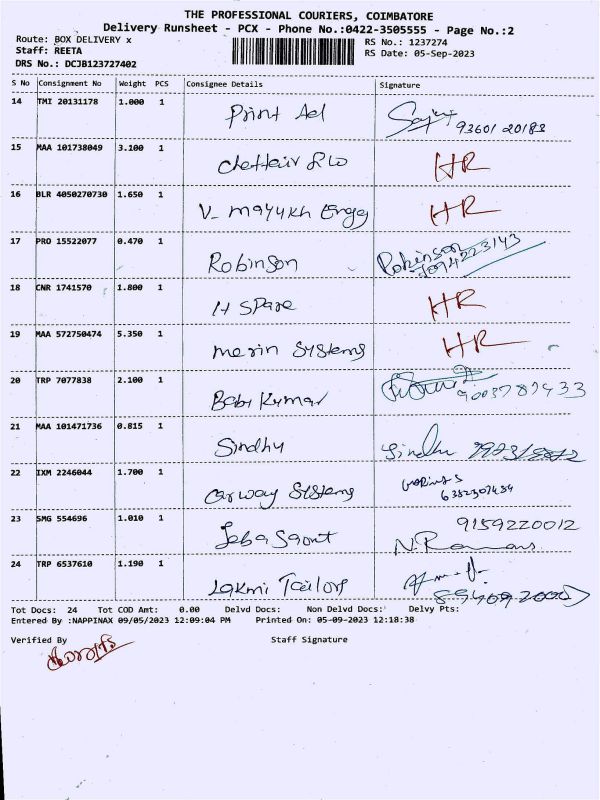 THE PROFESSIONAL COURIERS, COIMBATORE
Delivery Runsheet - PCX - Phone No.:0422-3505555 - Page No.:2
Route: BOX DELIVERY x RS No.: 1237274
Staff: REETA RS Date: 05-Sep-2023
DRS No.: DCJB123727402
S No Consignment No Weight PCS Consignee Details Signature
14 TMI 20131178 1.000 1 Print Ad 93601 20183
15 MAA 101738049 3.100 1 HR
16 BLR 4050270730 1.650 1 V- mayukh Engg HR
17 PRO 15522077 0.470 1 Robinson Robinson
18 CNR 1741570 1.800 1 H Spare HR
19 MAA 572750474 5.350 1 merin Systems HR
20 TRP 7077838 2.100 1 Babi Kumar 9003789433
21 MAA 101471736 0.815 1 Sindhu Sindhu
22 IXM 2246044 1.700 1 Carway Systems
6382307484
23 SMG 554696 1.010 1 9159220012
N.
24 TRP 6537610 1.190 1 Lakmi Tailors
Tot Docs: 24 Tot COD Amt: 0.00 Delvd Docs: Non Delvd Docs: Delvy Pts:
Entered By :NAPPINAX 09/05/2023 12:09:04 PM Printed On: 05-09-2023 12:18:38
Verified By Staff Signature